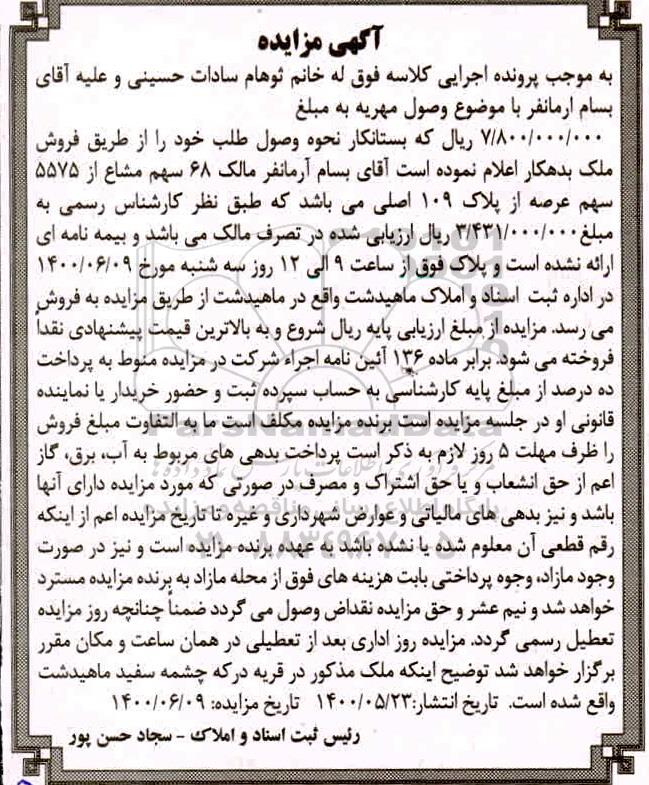 آگهی مزایده
به موجب پرونده اجرایی کلاسه فوق له خانم ثوهام سادات حسینی و علیه آقای
بسام ارمانفر با موضوع وصول مهریه به مبلغ
۷/۸۰۰/۰۰۰/۰۰۰ ریال که بستانکار نحوه وصول طلب خود را از طریق فروش
ملک بدهکار اعلام نموده است آقای بسام آرمانفر مالک ۶۸ سهم مشاع از ۵۵۷۵
سهم عرصه از پلاک ۱۰۹ اصلی می باشد که طبق نظر کارشناس رسمی به
مبلغ ۳/۴۳۱/۰۰۰/۰۰۰ ریال ارزیابی شده در تصرف مالک می باشد و بیمه نامه ای
ارائه نشده است و پلاک فوق از ساعت ۹ الی ۱۲ روز سه شنبه مورخ ۱۴۰۰/۰۶/۰۹
در اداره ثبت اسناد و املاک ماهیدشت واقع در ماهیدشت از طریق مزایده به فروش
می رسد. مزایده از مبلغ ارزیابی پایه ریال شروع و به بالاترین قیمت پیشنهادی نقداً
فروخته می شود. برابر ماده ۱۳۶ آئین نامه اجراء شرکت در مزایده منوط به پرداخت
ده درصد از مبلغ پایه کارشناسی به حساب سپرده ثبت و حضور خریدار یا نماینده
قانونی او در جلسه مزایده است برنده مزایده مکلف است ما به التفاوت مبلغ فروش
را ظرف مهلت ۵ روز لازم به ذکر است پرداخت بدهی های مربوط به آب، برق، گاز
اعم از حق انشعاب و یا حق اشتراک و مصرف در صورتی که مورد مزایده دارای آنها
باشد و نیز بدهی های مالیاتی و عوارض شهرداری و غیره تا تاریخ مزایده اعم از اینکه
رقم قطعی آن معلوم شده یا نشده باشد به عهده برنده مزایده است و نیز در صورت
وجود مازاد، وجوه پرداختی بابت هزینه های فوق از محله مازاد به برنده مزایده مسترد
خواهد شد و نیم عشر و حق مزایده نقداض وصول می گردد ضمناً چنانچه روز مزایده
تعطیل رسمی گردد. مزایده روز اداری بعد از تعطیلی در همان ساعت و مکان مقرر
برگزار خواهد شد توضیح اینکه ملک مذکور در قریه درکه چشمه سفید ماهیدشت
واقع شده است. تاریخ انتشار:۱۴۰۰/۰۵/۲۳ تاریخ مزایده: ۱۴۰۰/۰۶/۰۹
رئیس ثبت اسناد و املاک - سجاد حسن پور
ParsNamadData